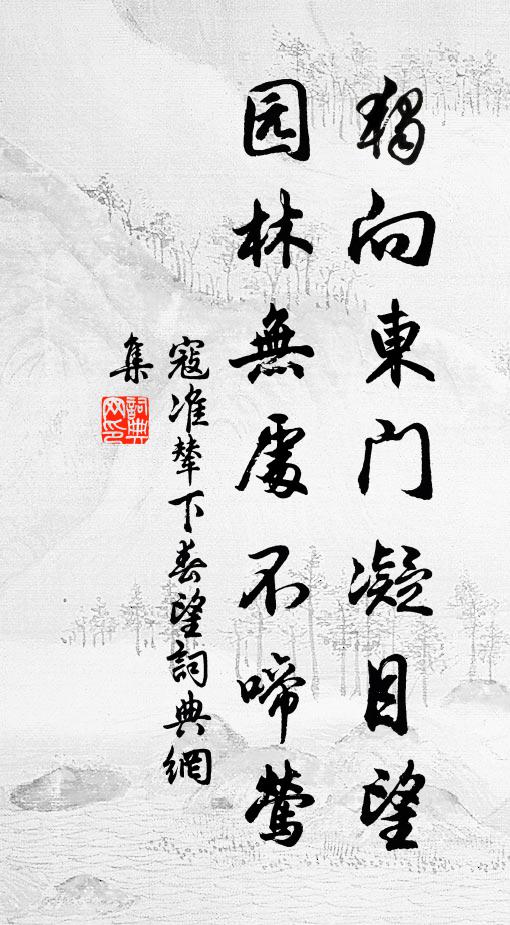 獨向東門凝目望
园林無處不啼鶯
寇准輦下春望詞典網
集
詞典
网印